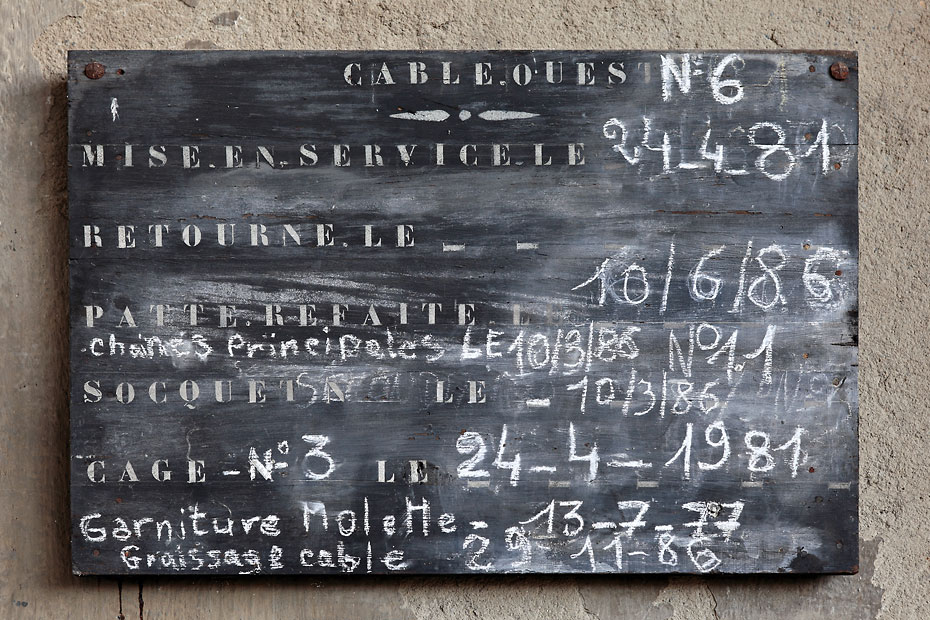 CABLE.OUEST N°6
MISE.EN.SERVICE.LE 24-4-81
RETOURNE.LE - -
10/6/86
PATTE.REFAITE LE
chaines Principales LE 10/3/86 N°11
SOCQUET N LE - 10/3/86
CAGE-N°3 LE 24-4-1981
Garniture Molette - 13-7-77
Graissage cable 29-11-86